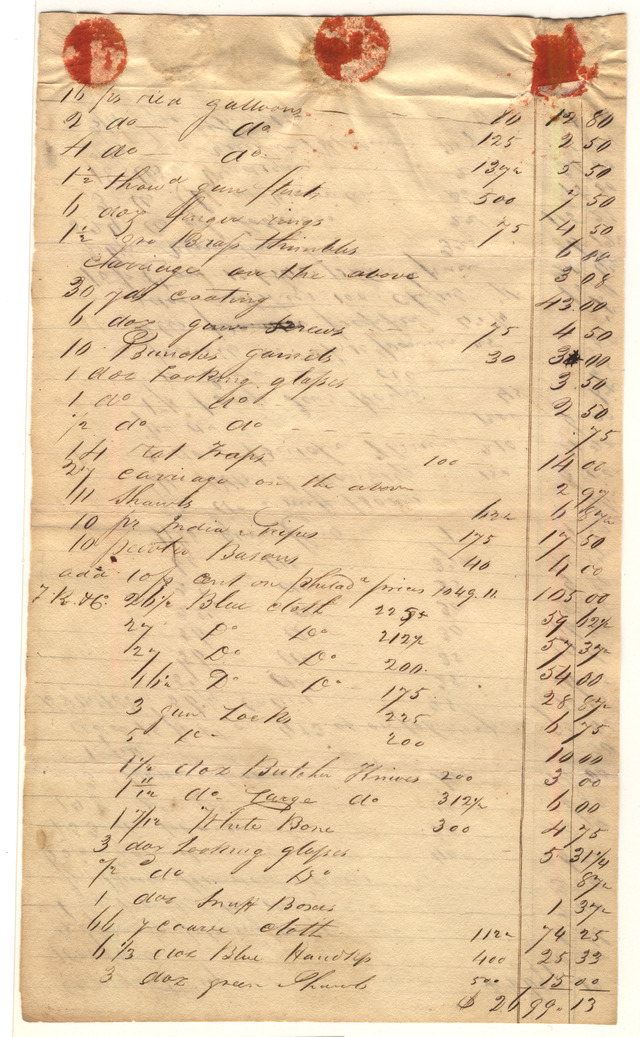 16 ps galloons — 80 12 80
2 do do 125 2 50
4 do do 137½ 5 50
1½ thowd gun flints 500 7 50
6 doz finger rings 75 4 50
1½ gro Brass thimbles 6 00
Carriage on the above 3 08
30 yds coating 43.00
6 doz gun screws 75 4 50
10 Bunches garnets 30 3 00
1 doz Looking glasses 3.50
1 do do 2 50
½ do do .75
14 Rat Traps 100 14 00
27 carriage on the above 2 97
11 Shawls 62½ 6 87½
10 ps India 175 17 50
10 pewter Basons 40 4 00
add 10 p cent on Philada prices 1049.11 105 00
26½ Blue cloth 225 59 62½
27 Do Do 212½ 57 37½
27 Do Do 200. 54 00
16½ Do Do 175. 28 87½
3 gun Locks 225 6 75
5 Do 200 10 00
1½ doz Butcher Knives 200 3 00
1 11/12 do Large do 312½ 6 00
1 7/12 White Bone 300 4 75
3 doz Looking glasses 5 31¼
½ do Do 87½
1 doz Snuff Boxes 1 37½
66 y coarse cloth 112½ 74 25
6⅓ doz Blue Handkfs 400 25 33
3 doz green Shawls 500 15 00
$ 2699.13